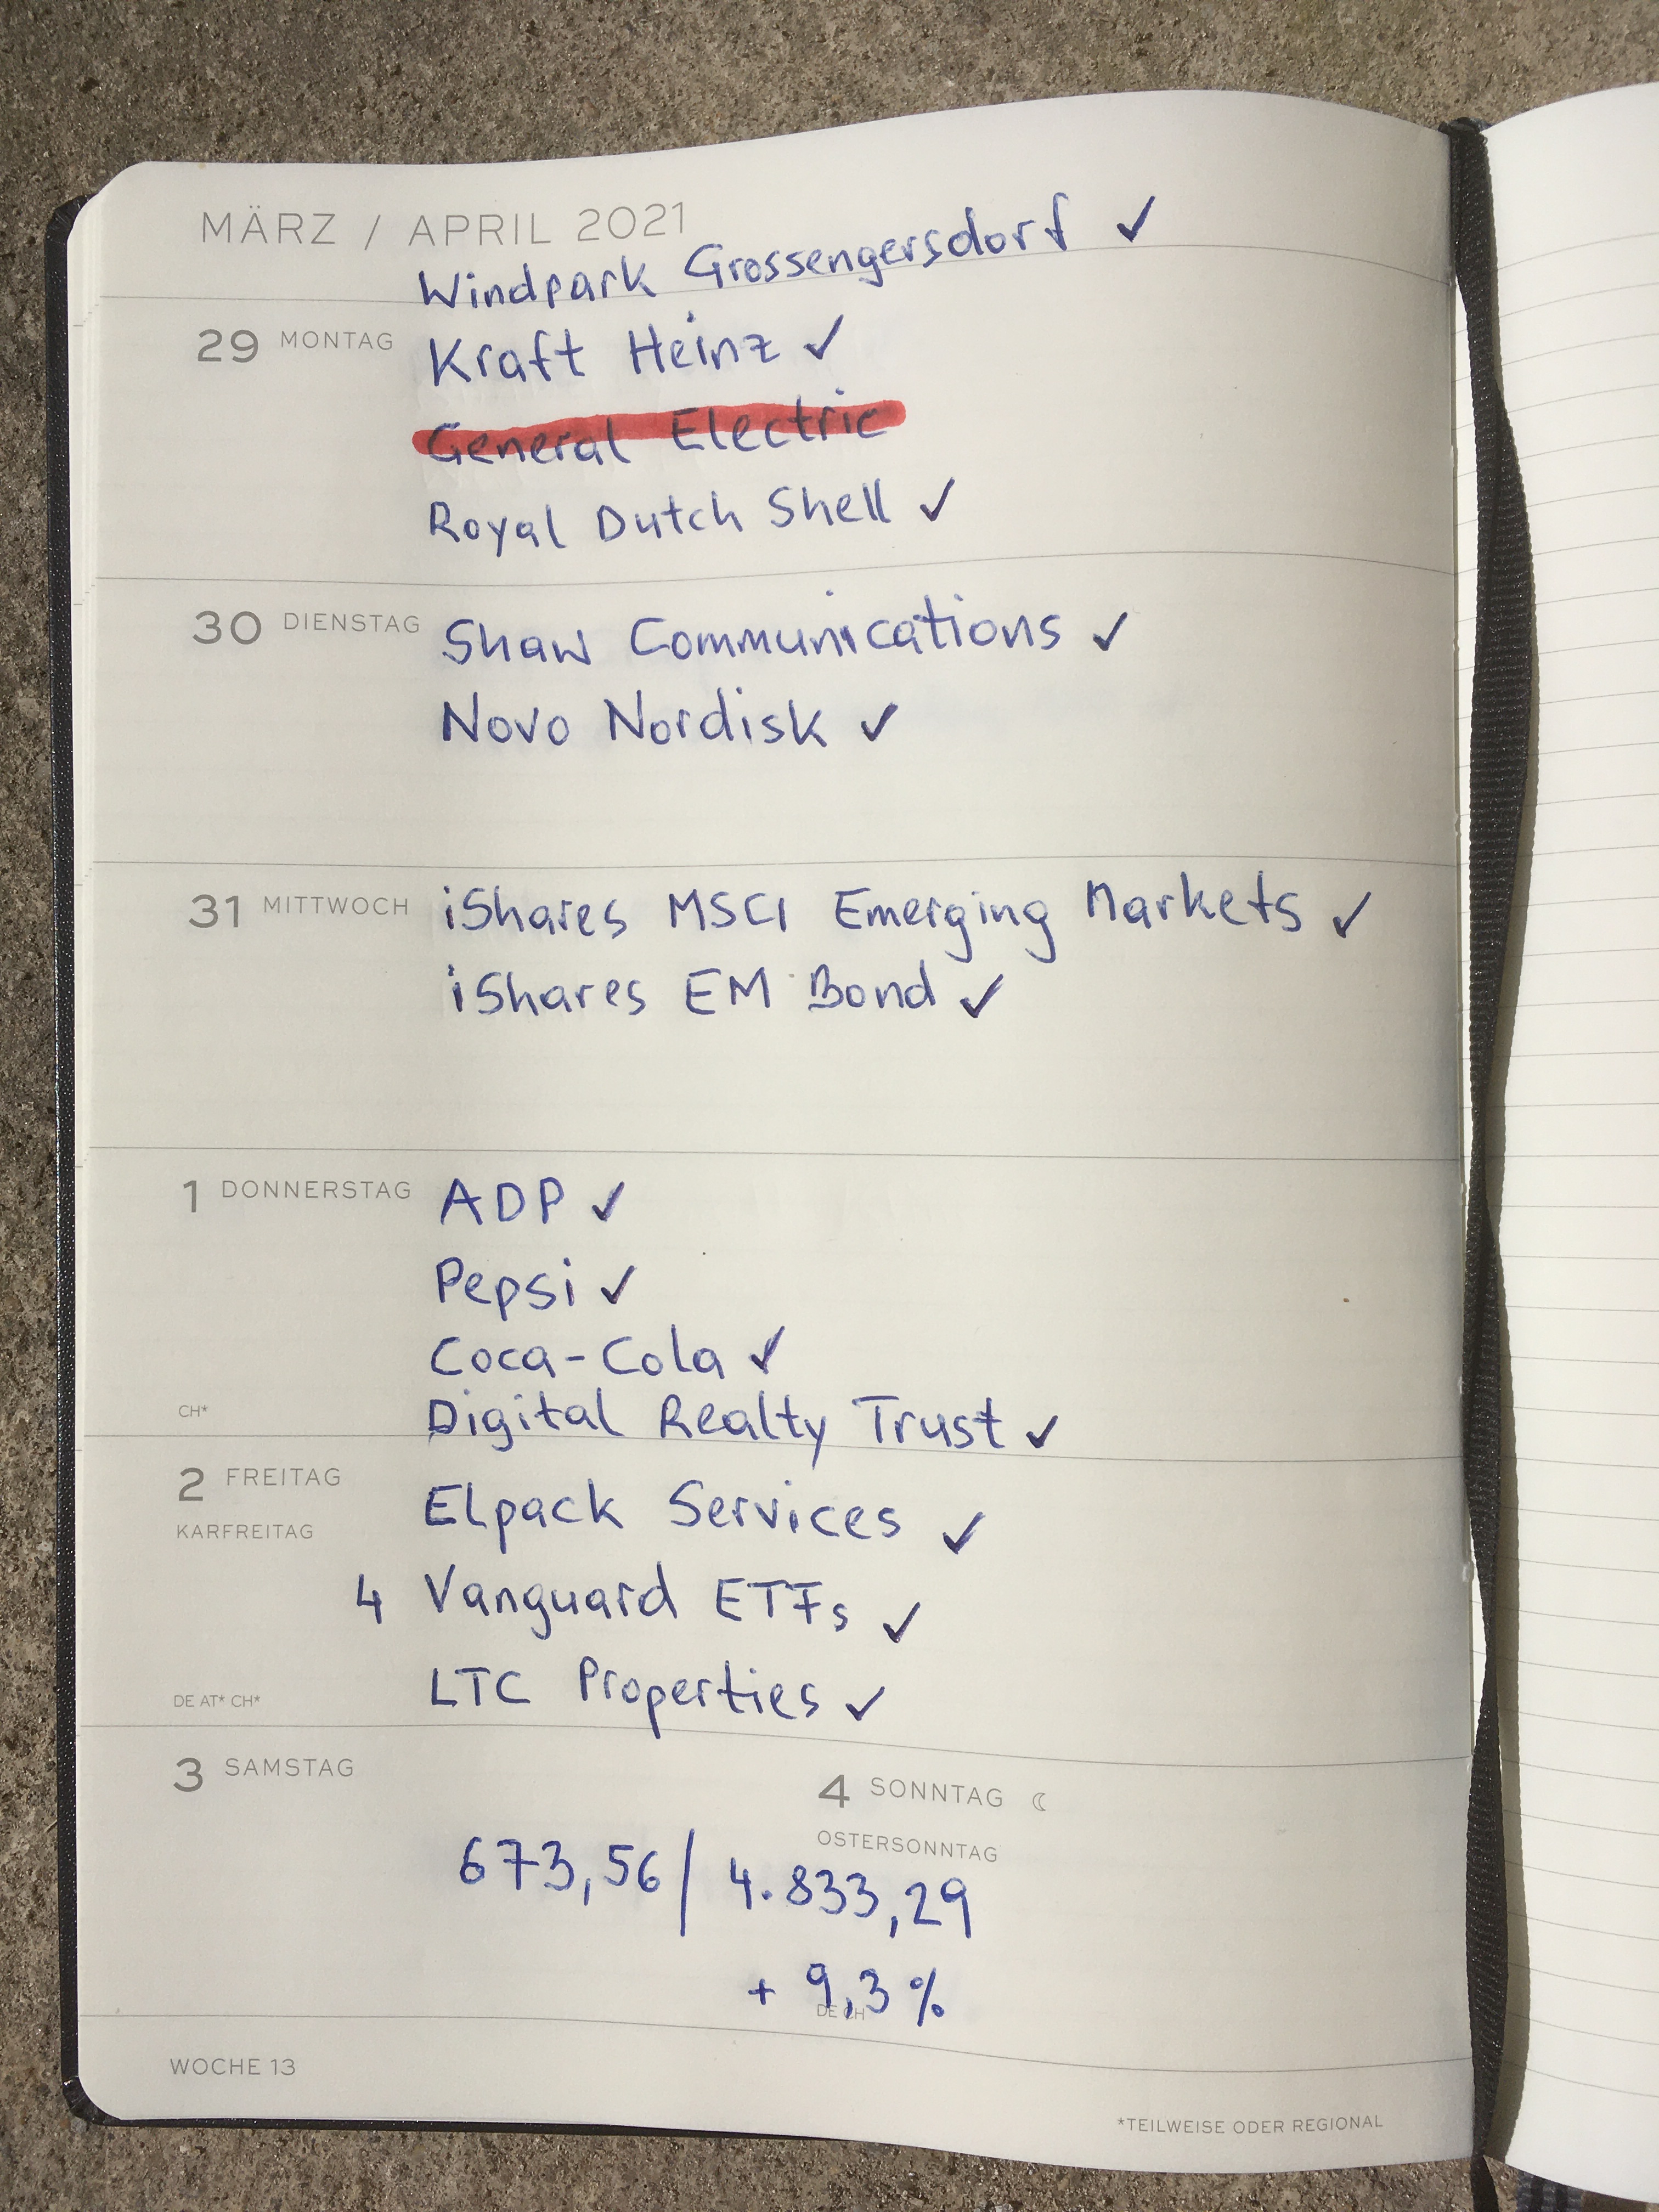 MÄRZ / APRIL 2021
Windpark Grossengersdorf ✓
29 MONTAG Kraft Heinz ✓
General Electric
Royal Dutch Shell ✓
30 DIENSTAG Shaw Communications ✓
Novo Nordisk ✓
31 MITTWOCH iShares MSCI Emerging Markets ✓
iShares EM Bond ✓
1 DONNERSTAG ADP ✓
Pepsi ✓
Coca-Cola ✓
CH* Digital Realty Trust ✓
2 FREITAG Elpack Services ✓
KARFREITAG
4 Vanguard ETFs ✓
DE AT* CH* LTC Properties ✓
3 SAMSTAG 4 SONNTAG ☾
OSTERSONNTAG
673,56 / 4.833,29
+ 9,3 %
DE CH
WOCHE 13
*TEILWEISE ODER REGIONAL